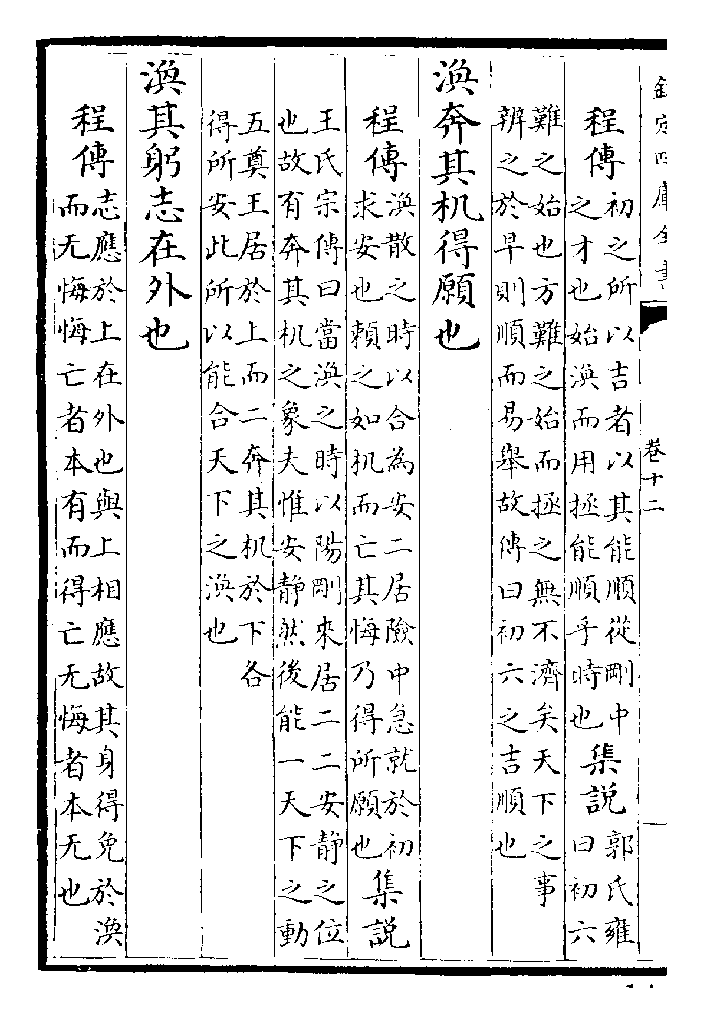 欽定四庫全書
卷十二
程傳初之所以吉者以其能順從剛中
之才也始渙而用拯能順乎時也集説郭氏雍
曰初六
難之始也方難之始而拯之無不濟矣天下之事
辨之於早則順而易舉故傳曰初六之吉順也
渙奔其机得願也
程傳渙散之時以合為安二居險中急就於初
求安也賴之如机而亡其悔乃得所願也集説
王氏宗傳曰當渙之時以陽剛來居二二安靜之位
也故有奔其机之象夫惟安靜然後能一天下之動
五奠王居於上而二奔其机於下各
得所安此所以能合天下之渙也
渙其躬志在外也
程傳志應於上在外也與上相應故其身得免於渙
而无悔悔亡者本有而得亡无悔者本无也